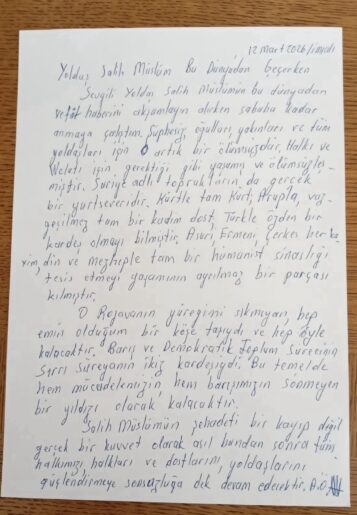 12 Mart 2026/imralı
Yoldaş Salih Müslüm Bu Dünyadan Geçerken
Sevgili Yoldaş Salih Müslümün bu dünyadan
vefat haberini akşamlayın alırken sabaha kadar
anmaya çalıştım. Şüphesiz oğulları, yakınları ve tüm
yoldaşları için O artık bir ölümsüzdür. Halkı ve
Welatı için gerektiği gibi yaşamış ve ölümsüzleş-
miştir. Suriye adlı toprakların da gerçek
bir yurtseveridir. Kürtle tam Kürt, Arapla, vaz-
geçilmez tam bir kadim dost, Türkle özden bir
kardeş olmayı bilmiştir. Asuri, Ermeni, Çerkes her ka-
vim, din ve mezheple tam bir hümanist sınaslığı
tesis etmeyi yaşamının ayrılmaz bir parçası
kılmıştır.
O Rojavanın yüreğini sıkmıyan, hep
emin olduğum bir köşe taşıydı ve hep öyle
kalacaktır. Barış ve Demokratik Toplum Sürecinin
Suriyanın ikiz kardeşiydi. Bu temelde
hem mücadelemizin, hem barışımızın sönmeyen
bir yıldızı olarak kalacaktır.
Salih Müslümün şehadeti bir kayıp değil
gerçek bir kuvvet olarak asıl bundan sonra tüm
halkımızı, halkları ve dostlarını, yoldaşlarını
güçlendirmeye sonsuzluğa dek devam edecektir. A.Ö